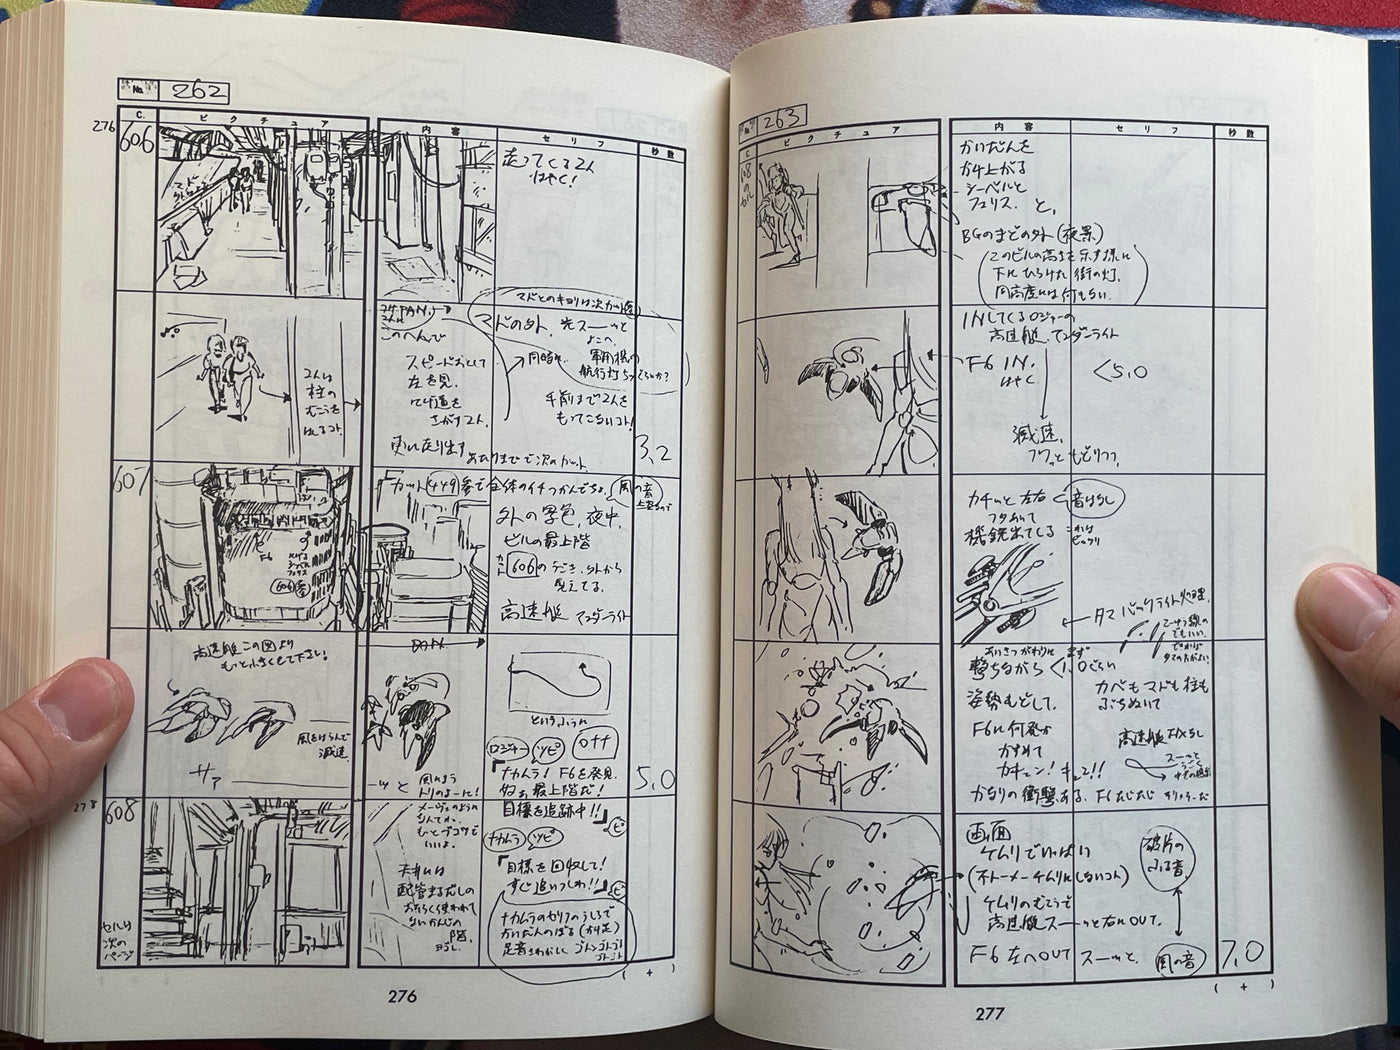 No. 262
C. ピクチュア 内容 セリフ 秒数
276
606
マド
走ってくる2人
はやく!
マドとのキョリは次カット
このへんで
スピードおとして
左を見、
にげ道を
さがす2人、
更に走り出す
マドの外、光スーーッと
よこへ、
軍用機の
同時に、
手前まで2人を
もってこないコト!
2人は
柱の
むこうを
はしるコト、
3.2
607
F6
606
カット449参で全体のイチつかんでちょ、
風の音
外の景色、夜中、
ビルの最上階
カット606のうごき、外から
見えてる、
高速艇 サンダーライト
高速艇この図より
もっと小さくして下さい!
風をはらんで
減速、
サァ
ーッと
風のよう
トリのよーに!
というふうに
ロジャー ツピ OFF
「ナカムラ! F6を発見、
最上階だ!
目標を追跡中!!」
ピ
5.0
278
608
セルは
次の
ページ
メーヴェのような
もっとブコツで
いいよ、
天井は
配管まるだしの
おそらく使われて
ないかんじの
階、
ナカムラ ツピ
「目標を回収して!
すぐ追いつくわ!!」
ピ
ナカムラのセリフのうしろで
かいだんのぼる
足音さわがしく ゴトンゴトンゴト
( + )
276
No. 263
C. ピクチュア 内容 セリフ 秒数
608のセル
かいだんを
かけ上がる
シーベルと
フェリス、と、
BGのまどの外(夜景)
(このビルの高さを示す様に
下にひろげた街の灯、
同高度には何もない、)
INしてくるロジャーの
高速艇、サンダーライト
F6 IN、
はやく
<5.0
減速、
フワッともどりつつ、
カチッと左右
フタあいて
機銃出てくる
音はなし
これは
ビックリ
タマ バックライト処理、
あいさつがわりに まず
撃ちながら <1.0ぐらい
姿勢もどして、
カベもマドも柱も
ぶちぬいて
F6に何発か
かすめて
カキューン! キュン!!
かなりの衝撃ある、F6たじたじ
高速艇 FIXなし
スーーッと
画面
ケムリでいっぱい
(不トーメーケムリにしないコト)
ケムリのむこうで
高速艇スーーッと右にOUT、
F6 左へOUT スーーッと、
破片の
ふる音
風の音
7.0
( + )
277